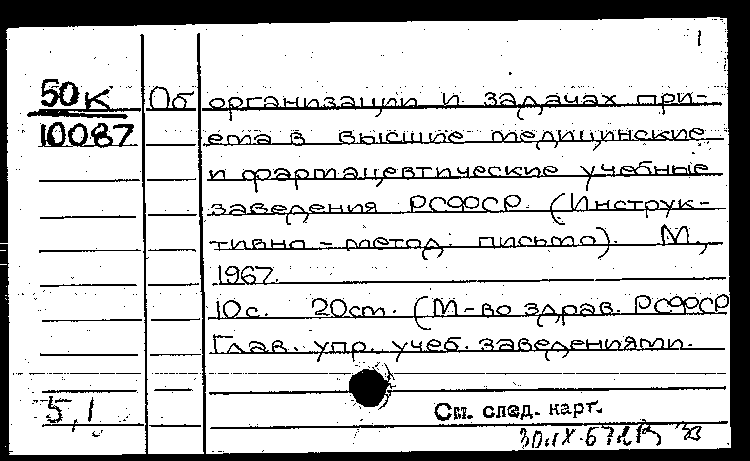 1
50к
10087
Об организации и задачах при-
ема в высшие медицинские
и фармацевтические учебные
заведения РСФСР. (Инструк-
тивно-метод. письмо). М.,
1967.
10с. 20см. (М-во здрав. РСФСР
Глав. упр. учеб. заведениями.
5,1
См. след. карт.